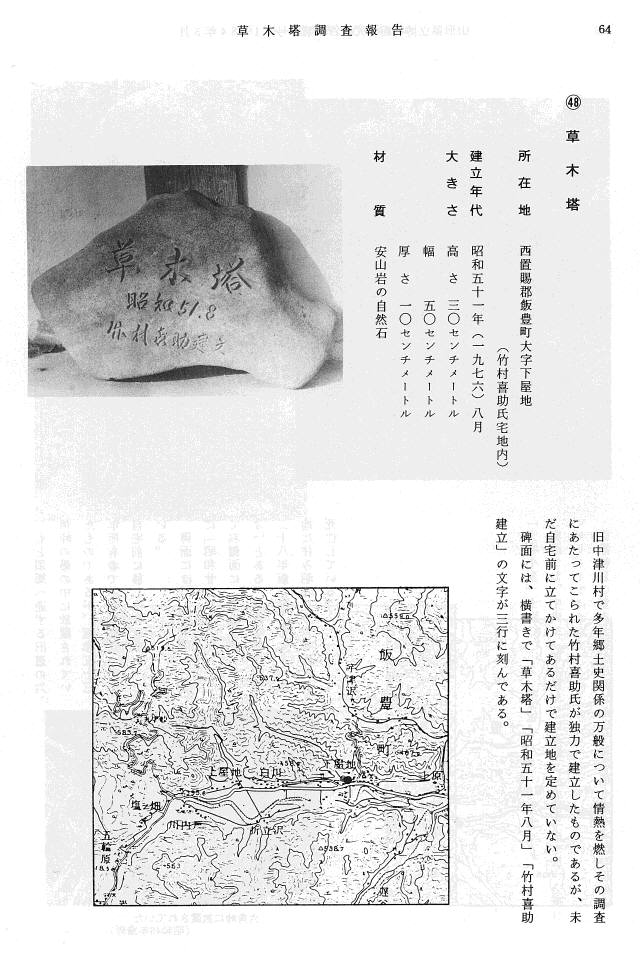 草木塔調査報告
64
㊽ 草木塔
所在地 西置賜郡飯豊町大字下屋地
(竹村喜助氏宅地内)
建立年代 昭和五十一年(一九七六)八月
大きさ 高さ 三〇センチメートル
幅 五〇センチメートル
厚さ 一〇センチメートル
材質 安山岩の自然石
草木塔
昭和51.8
竹村喜助建立
旧中津川村で多年郷土史関係の万般について情熱を燃しその調査
にあたってこられた竹村喜助氏が独力で建立したものであるが、未
だ自宅前に立てかけてあるだけで建立地を定めていない。
碑面には、横書きで「草木塔」「昭和五十一年八月」「竹村喜助
建立」の文字が三行に刻んである。
飯豊町
上屋地
白川
下屋地
上原
塩ノ畑
川内戸
折立沢
五輪原